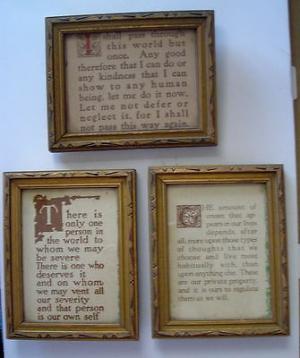 I shall pass through
this world but
once. Any good
therefore that I can do or
any kindness that I can
show to any human
being, let me do it now.
Let me not defer or
neglect it, for I shall
not pass this way again.
There is
only one
person in
the world to
whom we may
be severe
There is one who
deserves it
and on whom
we may vent all
our severity
and that person
is our own self
THE amount of
that ap-
pears in our lives
depends, after
all, more upon those types
of thoughts that we
choose and live most
habitually with, than
upon anything else. These
are our private property,
and it is ours to regulate
them as we will.